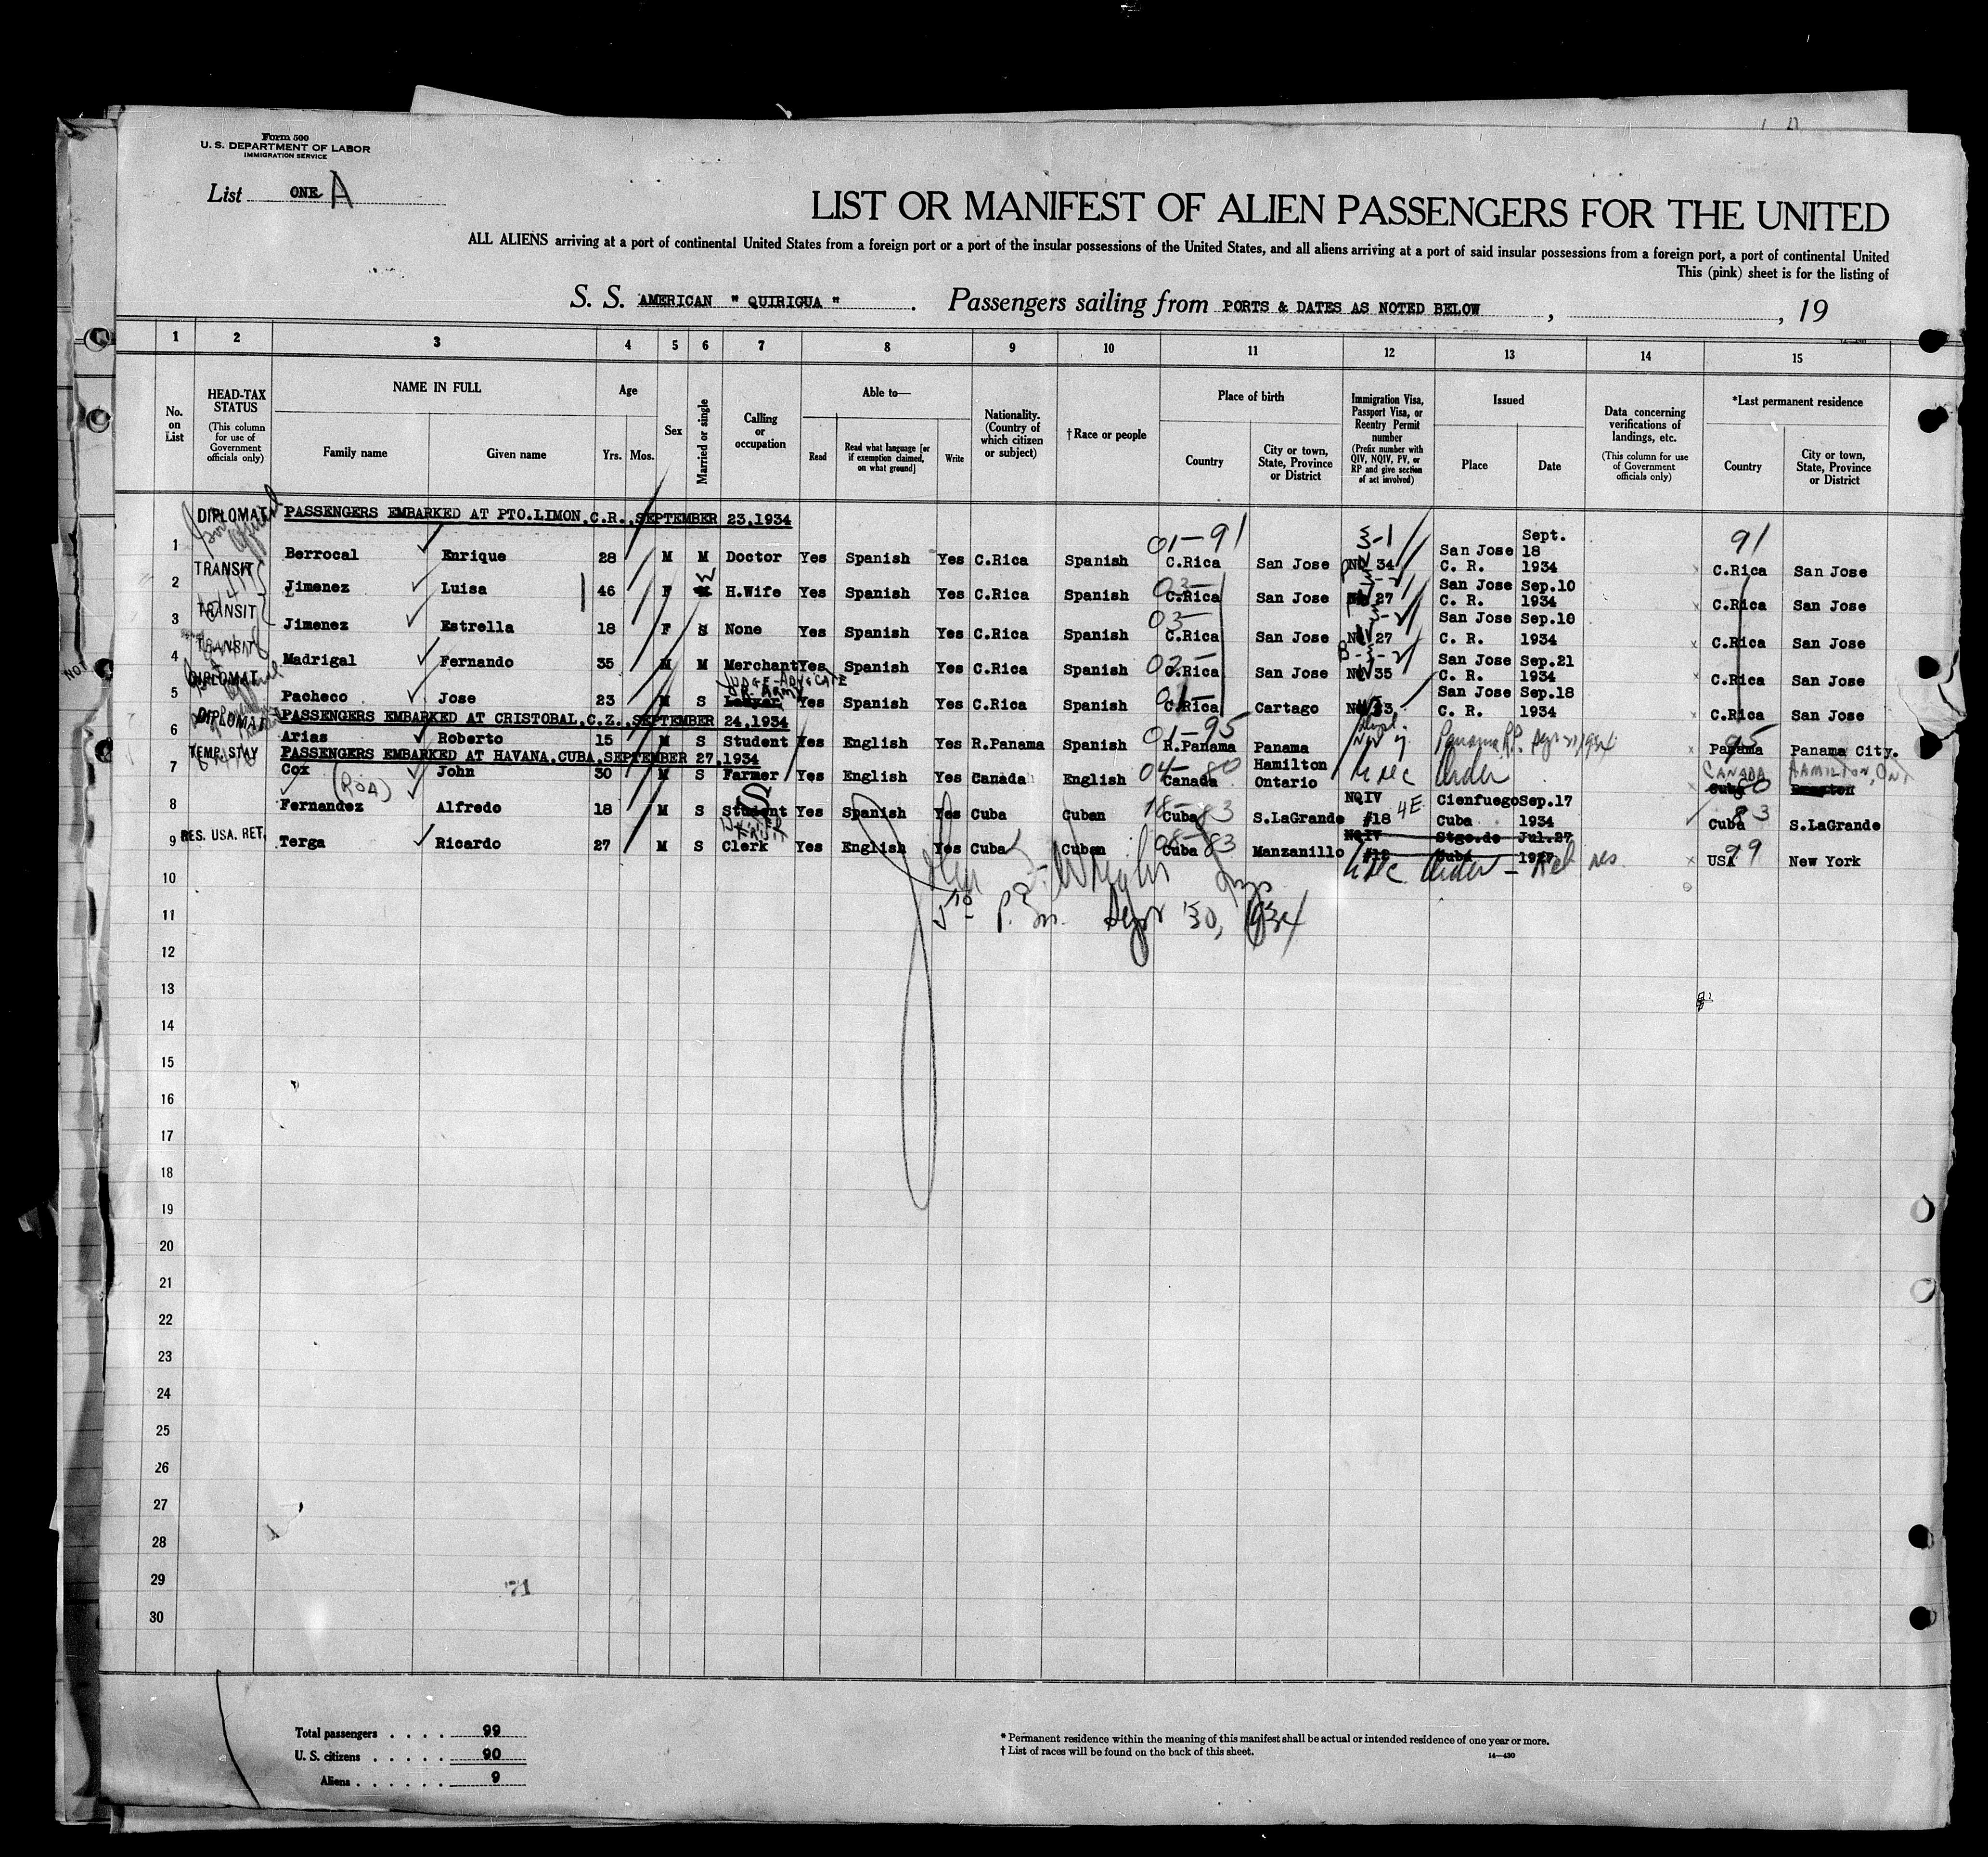 Form 500
U. S. DEPARTMENT OF LABOR
IMMIGRATION SERVICE
List ONE A
LIST OR MANIFEST OF ALIEN PASSENGERS FOR THE UNITED
ALL ALIENS arriving at a port of continental United States from a foreign port or a port of the insular possessions of the United States, and all aliens arriving at a port of said insular possessions from a foreign port, a port of continental United
This (pink) sheet is for the listing of
S. S. AMERICAN " QUIRIGUA ". Passengers sailing from PORTS & DATES AS NOTED BELOW , , 19
1 2 3 4 5 6 7 8 9 10 11 12 13 14 15
No. on List
HEAD-TAX STATUS (This column for use of Government officials only)
NAME IN FULL Family name Given name
Age Yrs. Mos.
Sex
Married or single
Calling or occupation
Able to— Read Read what language [or if exemption claimed, on what ground] Write
Nationality. (Country of which citizen or subject)
†Race or people
Place of birth Country City or town, State, Province or District
Immigration Visa, Passport Visa, or Reentry Permit number (Prefix number with QIV, NQIV, PV, or RP and give section of act involved)
Issued Place Date
Data concerning verifications of landings, etc. (This column for use of Government officials only)
*Last permanent residence Country City or town, State, Province or District
PASSENGERS EMBARKED AT PTO.LIMON,C.R.,SEPTEMBER 23,1934
1 DIPLOMAT Berrocal Enrique 28 M M Doctor Yes Spanish Yes C.Rica Spanish 01-91 C.Rica San Jose 3-1 34 San Jose C. R. Sept. 18 1934 91 C.Rica San Jose
2 TRANSIT Jimenez Luisa 46 F H.Wife Yes Spanish Yes C.Rica Spanish 03- C.Rica San Jose 27 San Jose C. R. Sep.10 1934 C.Rica San Jose
3 TRANSIT Jimenez Estrella 18 F S None Yes Spanish Yes C.Rica Spanish 03- C.Rica San Jose 27 San Jose C. R. Sep.10 1934 C.Rica San Jose
4 TRANSIT Madrigal Fernando 35 M M Merchant Yes Spanish Yes C.Rica Spanish 02- C.Rica San Jose 35 San Jose C. R. Sep.21 1934 C.Rica San Jose
5 DIPLOMAT Pacheco Jose 23 M S JUDGE-ADVOCATE Yes Spanish Yes C.Rica Spanish 01- C.Rica Cartago 33 San Jose C. R. Sep.18 1934 C.Rica San Jose
PASSENGERS EMBARKED AT CRISTOBAL,C.Z.,SEPTEMBER 24,1934
6 DIPLOMAT Arias Roberto 15 M S Student Yes English Yes R.Panama Spanish 01-95 R.Panama Panama 95 Panama Panama City.
PASSENGERS EMBARKED AT HAVANA,CUBA,SEPTEMBER 27,1934
7 TEMP. STAY Cox John 30 M S Farmer Yes English Yes Canada English 04-80 Canada Hamilton Ontario Exec Order CANADA HAMILTON, ONT 80
8 Fernandez (ROA) Alfredo 18 M S Student Yes Spanish Yes Cuba Cuban 18-83 Cuba S.LaGrande NQIV #18 4E Cienfuego Cuba Sep.17 1934 83 Cuba S.LaGrande
9 RES. USA. RET. Terga Ricardo 27 M S Clerk Yes English Yes Cuba Cuban 08-83 Cuba Manzanillo NQIV Stgo.de Cuba Jul.27 Exec Order - Ret res 99 USA New York
10
5 P.M. Sept 30, 1934
11
12
13
14
15
16
17
18
19
20
21
22
23
24
25
26
27
28
29
30
71
Total passengers . . . . 99
U. S. citizens . . . . . 90
Aliens . . . . . . 9
* Permanent residence within the meaning of this manifest shall be actual or intended residence of one year or more.
† List of races will be found on the back of this sheet.
14—430